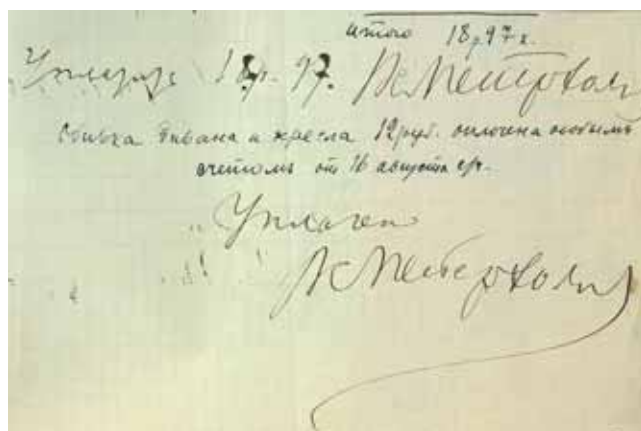 итого 18 р 97 к.
18р. 97.
Обивка дивана и кресла 12 руб. оплочена особымъ
счетомъ от 16 августа с/г.
Уплачено